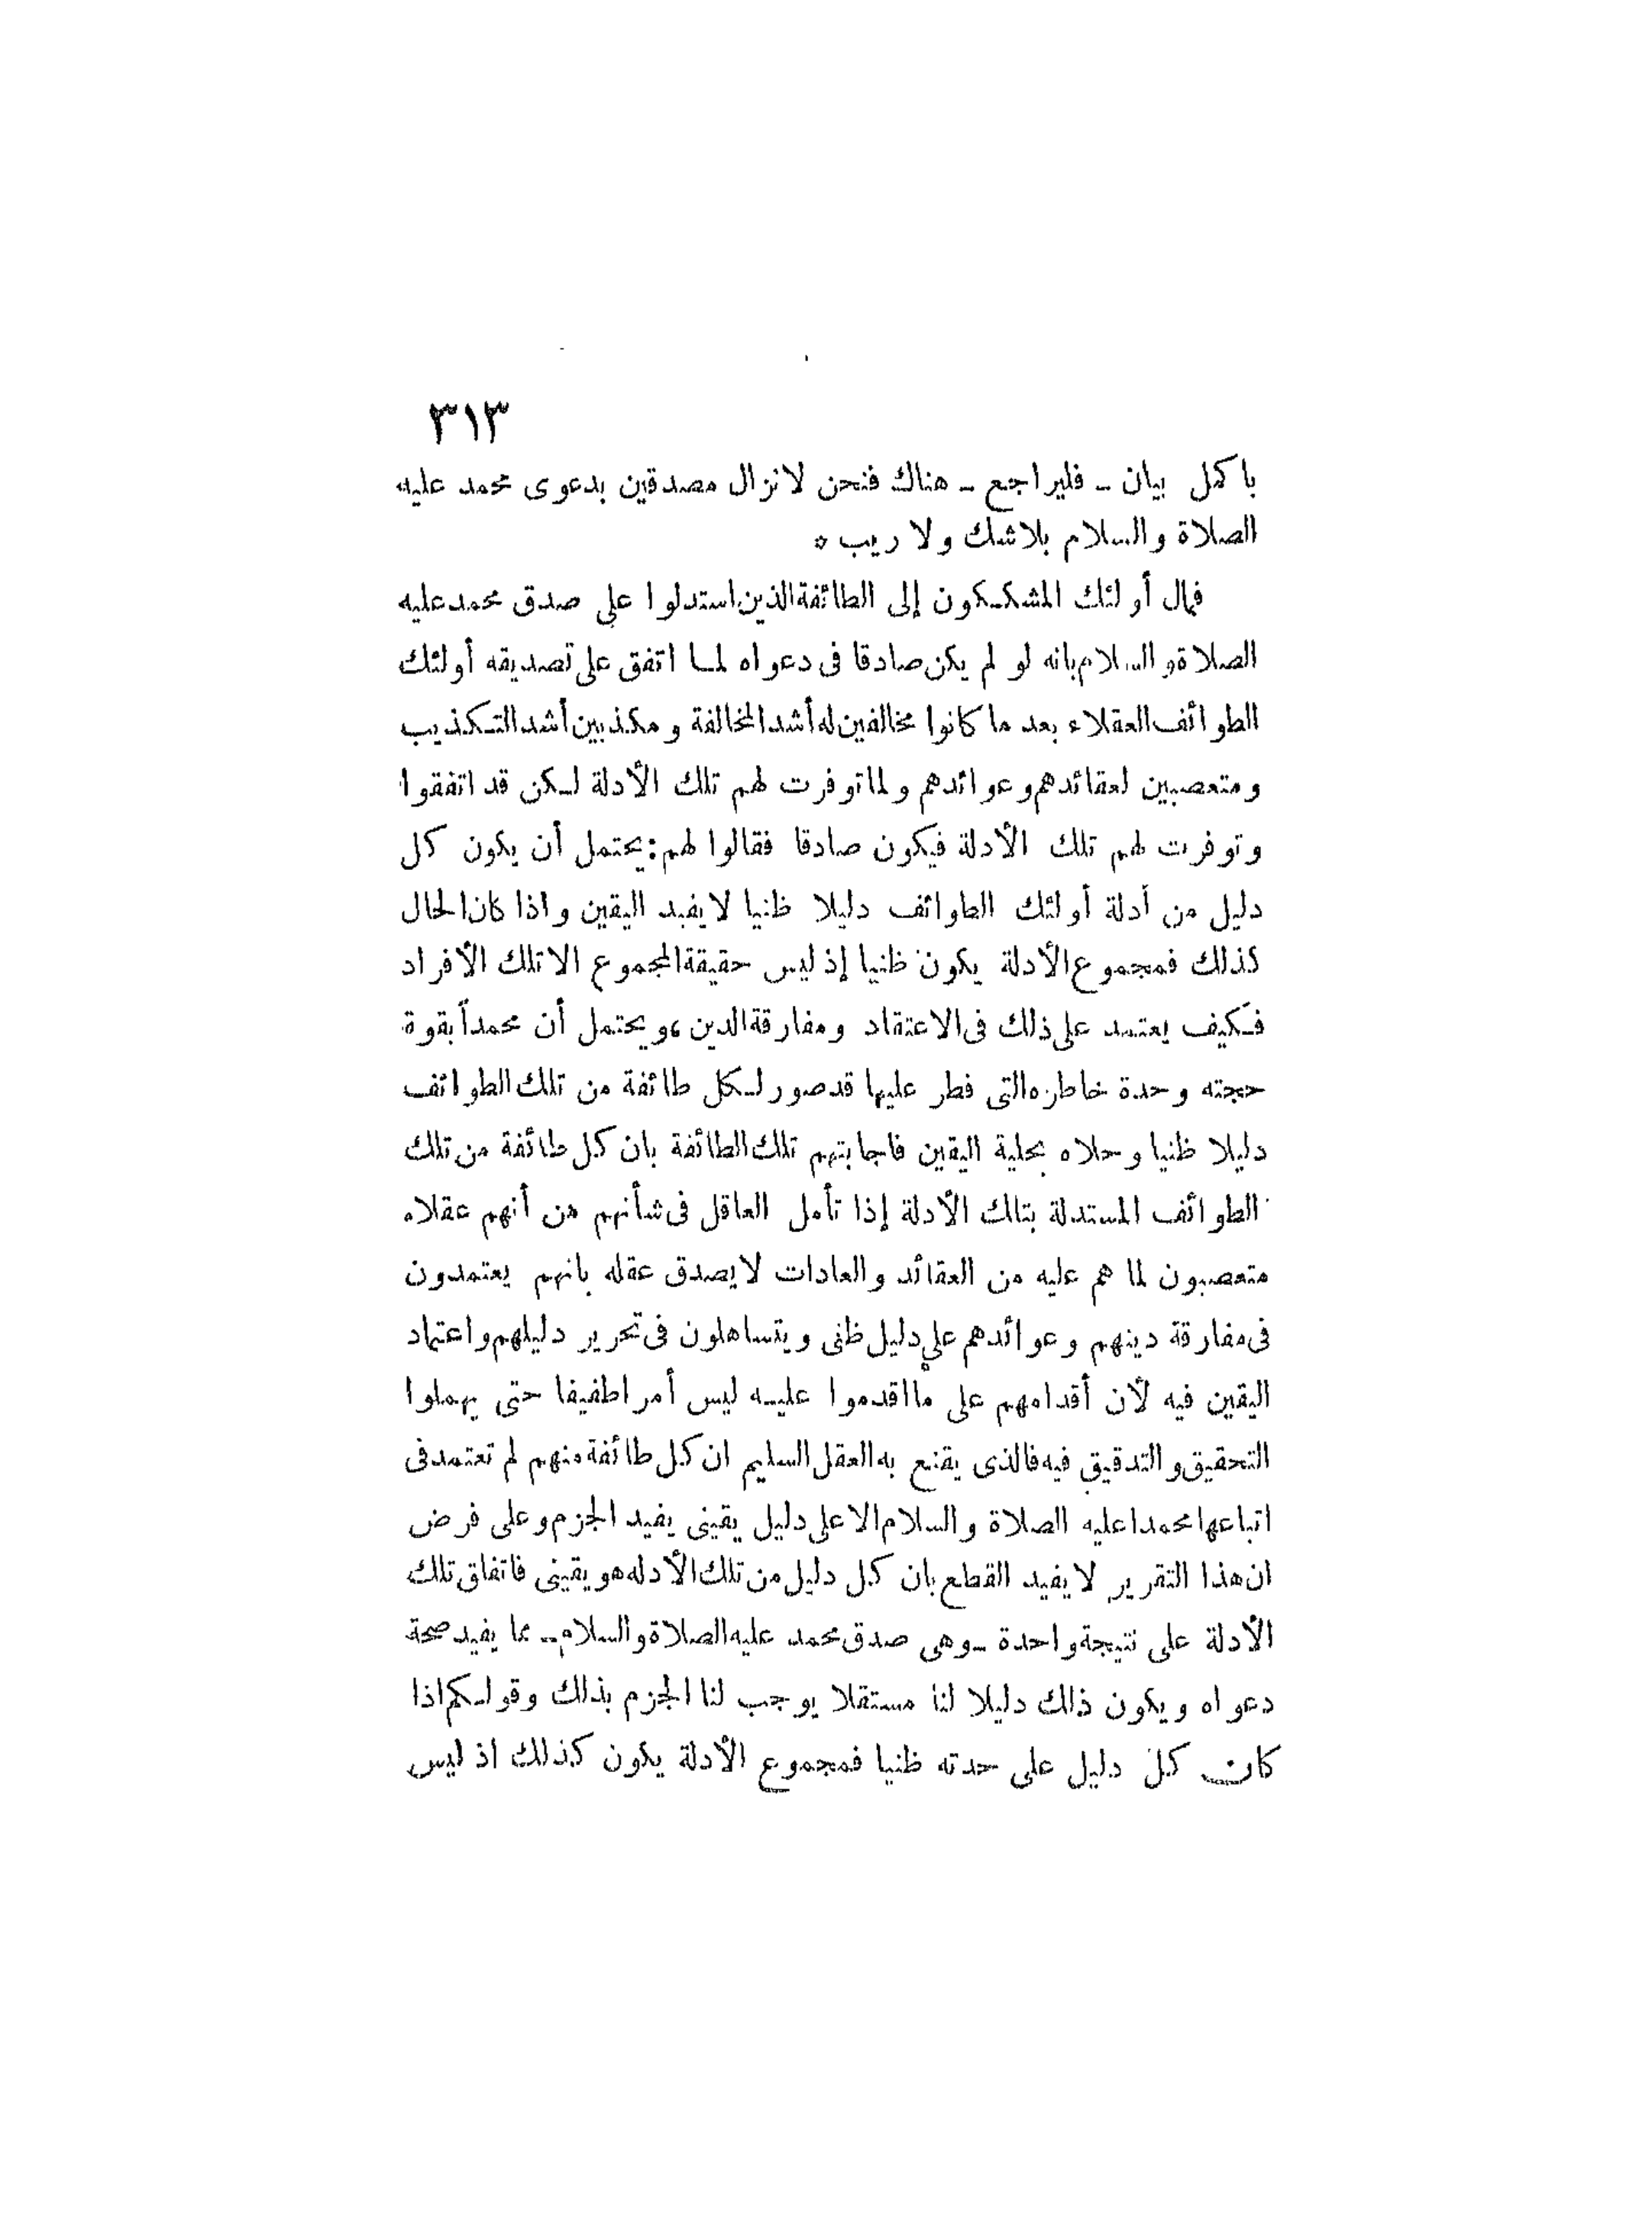 ٣١٣
باكمل بيان ـ فليراجع ـ هناك فنحن لانزال مصدقين بدعوى محمد عليه
الصلاة والسلام بلاشك ولا ريب *
فمال أولئك المشككون إلى الطائفة الذين استدلوا على صدق محمد عليه
الصلاة والسلام بانه لو لم يكن صادقا فى دعواه لما اتفق على تصديقه أولئك
الطوائف العقلاء بعد ما كانوا مخالفين له أشد المخالفة ومكذبين أشد التكذيب
ومتعصبين لعقائدهم وعوائدهم ولما توفرت لهم تلك الأدلة لكن قد اتفقوا
وتوفرت لهم تلك الأدلة فيكون صادقا فقالوا لهم: يحتمل أن يكون كل
دليل من أدلة أولئك الطوائف دليلا ظنيا لا يفيد اليقين واذا كان الحال
كذلك فمجموع الأدلة يكون ظنيا إذ ليس حقيقة المجموع الا تلك الأفراد
فكيف يعتمد على ذلك فى الاعتقاد ومفارقة الدين، ويحتمل أن محمداً بقوة
حجته وحدة خاطره التى فطر عليها قد صور لكل طائفة من تلك الطوائف
دليلا ظنيا وحلاه بحلية اليقين فاجابتهم تلك الطائفة بان كل طائفة من تلك
الطوائف المستدلة بتلك الأدلة إذا تأمل العاقل فى شأنهم من أنهم عقلاء
متعصبون لما هم عليه من العقائد والعادات لا يصدق عقله بانهم يعتمدون
فى مفارقة دينهم وعوائدهم على دليل ظنى ويتساهلون فى تحرير دليلهم واعتماد
اليقين فيه لأن أقدامهم على ما اقدموا عليه ليس أمرا طفيفا حتى يهملوا
التحقيق والتدقيق فيه فالذى يقنع به العقل السليم ان كل طائفة منهم لم تعتمد فى
اتباعها محمدا عليه الصلاة والسلام الا على دليل يقينى يفيد الجزم وعلى فرض
ان هذا التقرير لا يفيد القطع بان كل دليل من تلك الأدله هو يقينى فاتفاق تلك
الأدلة على نتيجة واحدة ـ وهى صدق محمد عليه الصلاة والسلام ـ مما يفيد صحة
دعواه ويكون ذلك دليلا لنا مستقلا يوجب لنا الجزم بذلك وقولكم اذا
كان كل دليل على حدته ظنيا فمجموع الأدلة يكون كذلك اذ ليس